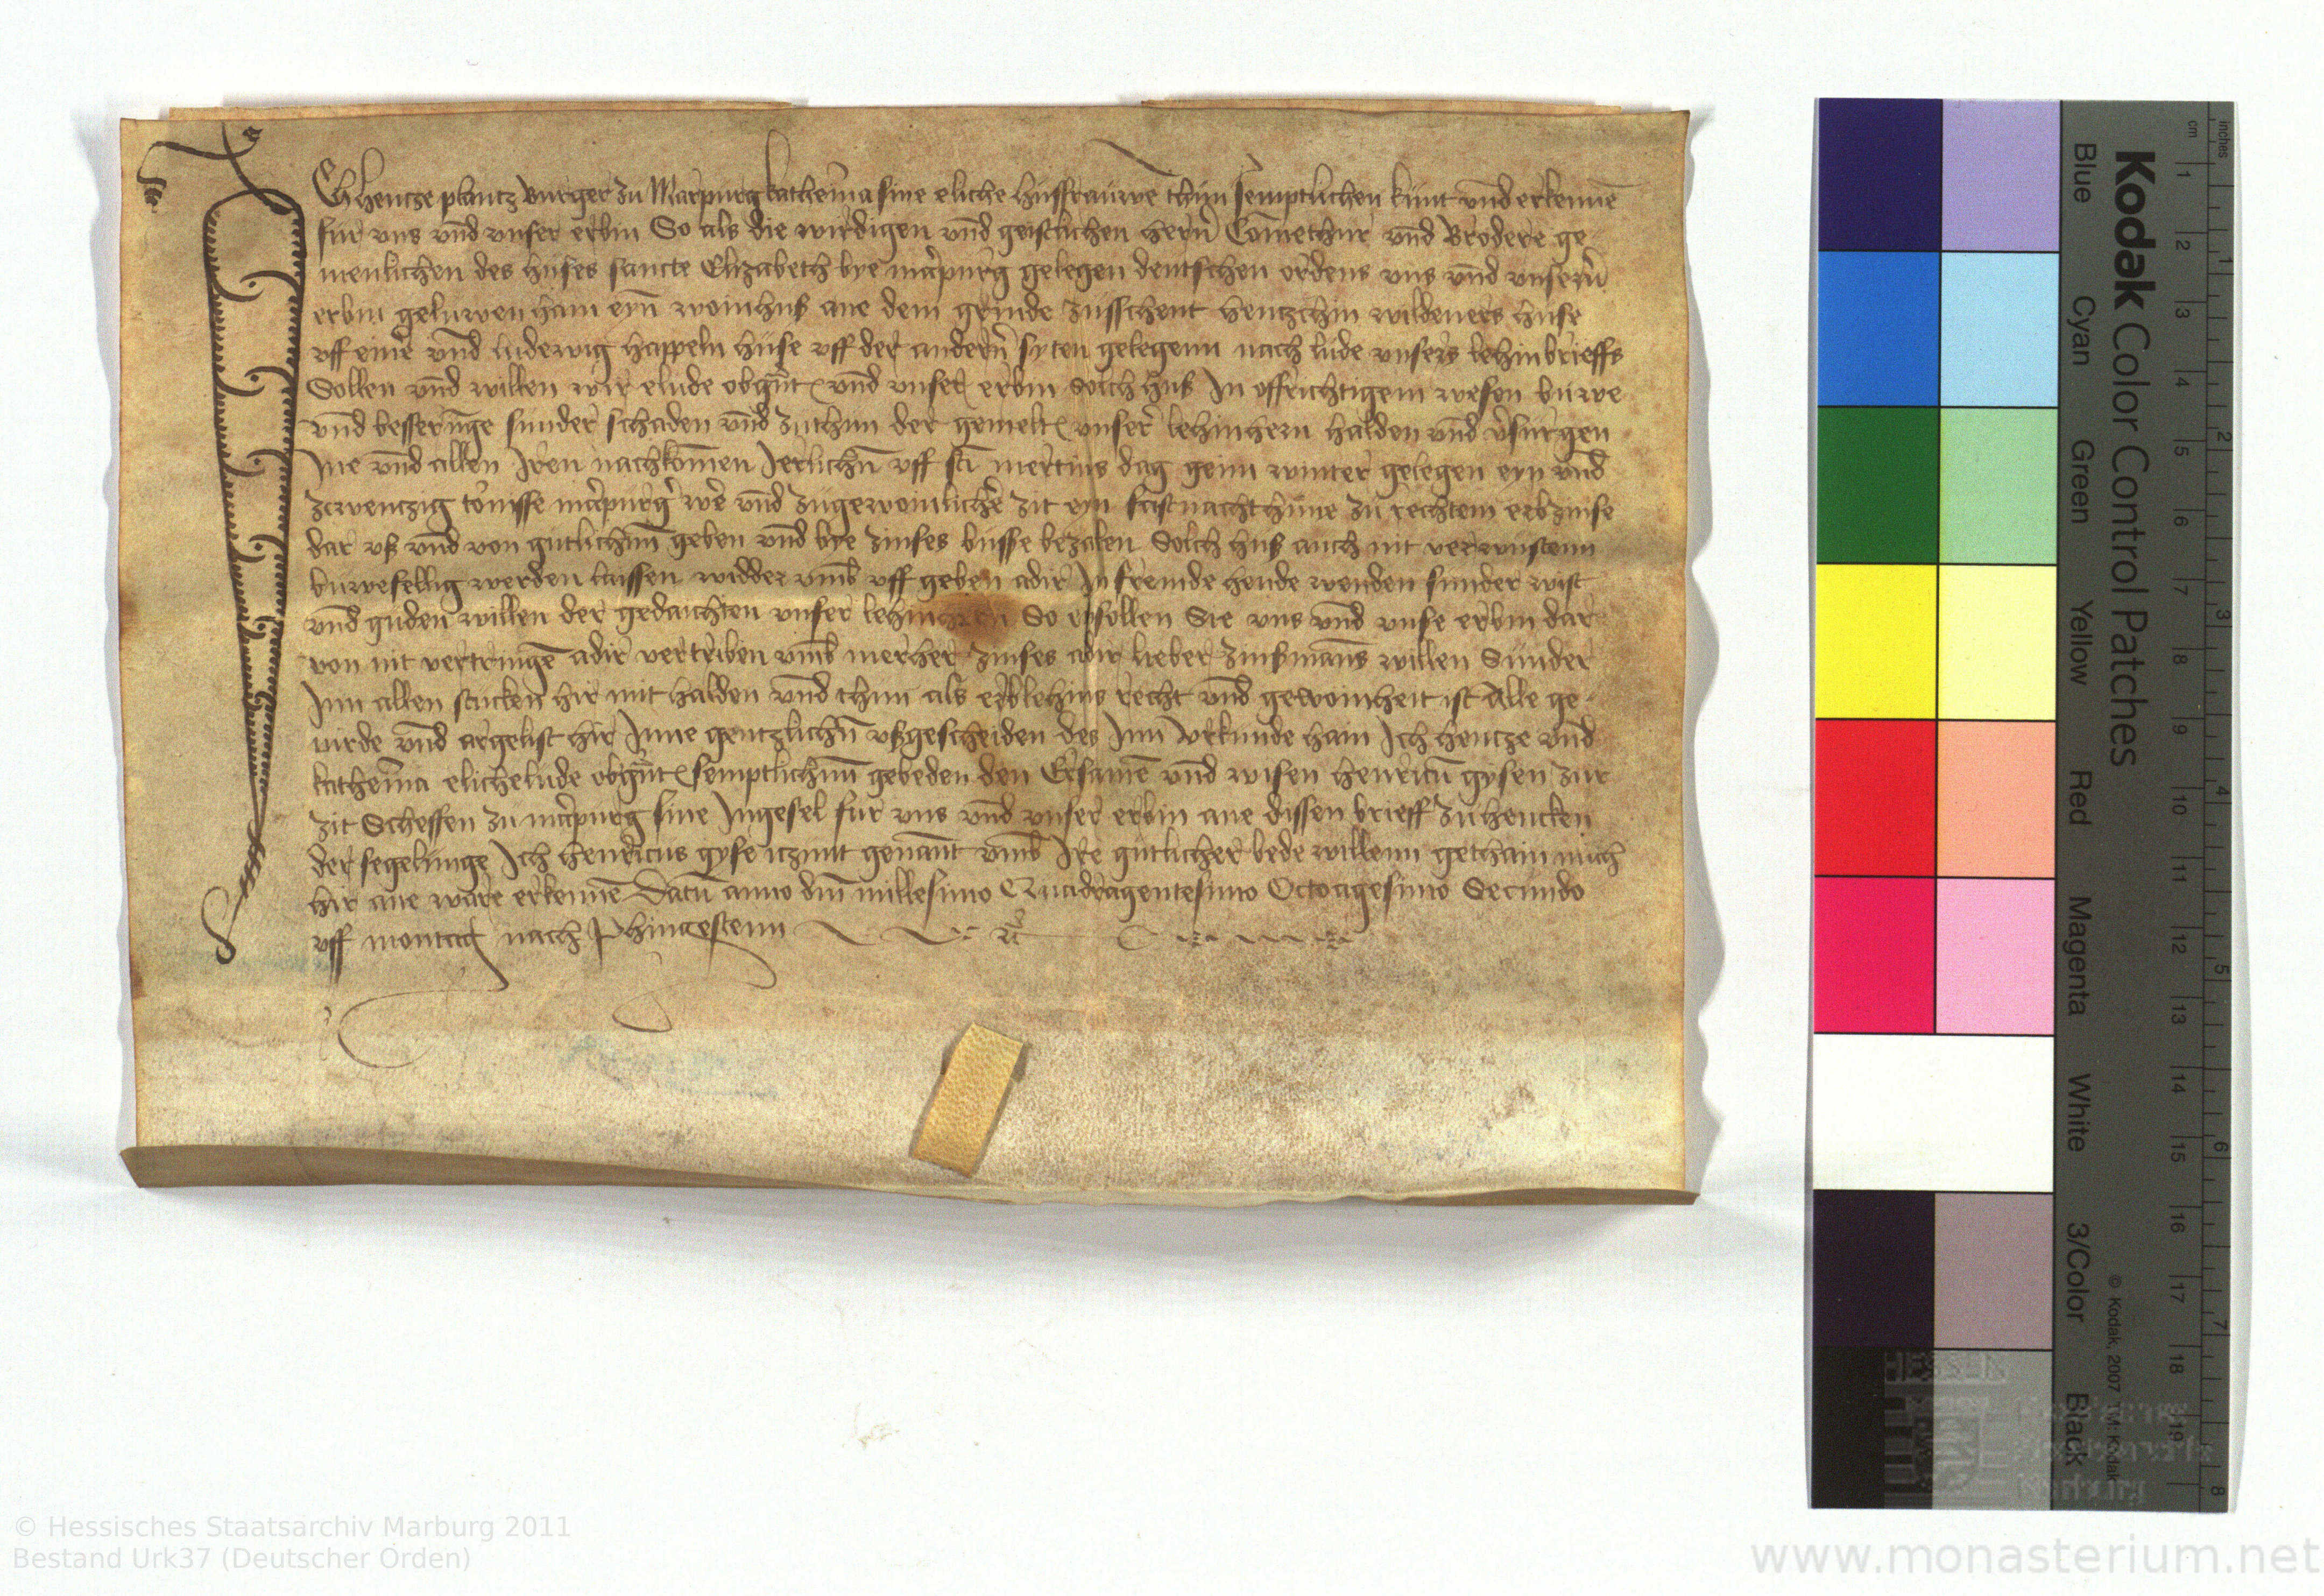 Ich Hentze plantz Burger zu Marpurg katherina sine eliche hussfrauwe thun semptlichen kunt vnd erkennē
fur vns vnd vnser erbin So als die wirdigen vnd geistlichen hern̄ Comethur vnd Brodere ge-
meinlichen des huses sancte Elizabeth bye mārpurg gelegen deutschen ordens vns vnd vnsern̄
erbin geluwen hain eyn̄ woinhuß ane dem grinde zusschent hentzchin wildeners huse
vff eine vnd ludewig happeln huse vff der andern̄ syten gelegenn nach lude vnsers lehinbrieffs
Sollen vnd willen wir elude obgnt vnd vnser erbin solch huß In offrichtigem wesen buwe
vnd besserūge sunder schaden vnd zuthun der gemelt vnser lehinhern halden vnd v̄surgen
Ine vnd allen Iren nachkomen Jerlichn̄ vff sct mertins dag geim winter gelegen eyn vnd
zcwentzig tornisse mārpurḡ we vnd zugewoinliche zit eyn fastnacht hune zu rechtem erbzinse
dar vß vnd von gutlichnn̄ geben vnd bye zinses busse bezalen Solch huß auch nit verwustenn
buwefellig werden laissen widder vmb vff geben adir In fremde hende wenden sunder wist
vnd guden willen der gedaichten vnser lehinhern So ensollen Sie vns vnd vnse erbin dar
von nit vertringē adir vertriben vmb merher zinses adir lieber zinßmans willen Sunder
Inn allen stucken hir mit halden vnd thun als erblehins recht vnd gewoinheit ist Alle ge-
uirde vnd argelist hir Inne gentzlichn̄ vßgescheiden des Inn Urkunde hain Ich hentze vnd
katherina elichelude obgnt semptlichnn̄ gebeden den Ersamē vnd wisen henricū gysen zur
zit Scheffen zu mārpurg sine Ingesel fur vns vnd vnser erbin ane dissen brieff zu hencken
der segelunge Ich henricus gyse itzunt genant vmb Ire gutlicher bede willenn gethain mich
hir ane ware erkennē Datū anno dm̄ millesimo Quadragentesimo Octoagesimo Secundo
vff montag nach Phingestenn
Kodak Color Control Patches
Blue Cyan Green Yellow Red Magenta White 3/Color Black
© Kodak, 2007 TM: Kodak
inches 1 2 3 4 5 6 7 8
cm 1 2 3 4 5 6 7 8 9 10 11 12 13 14 15 16 17 18 19
© Hessisches Staatsarchiv Marburg 2011
Bestand Urk37 (Deutscher Orden)
www.monasterium.net